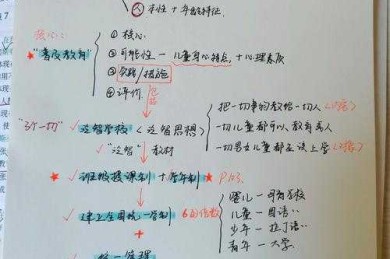 本性 + 年龄特征.
核心
① 核心
"普及教育"
② 可能性 — 儿童身心特点, + 心理素质
③ 实践/措施
④ 评价
"3个一切"
泛智学校 < 泛智思想 >
把一切事物教给一切人
一切儿童都可以教育成人
一切男女儿童都应该上学
"泛智" 教材
班级授课制 + 学年制 P103
建立全国统一学制 6的倍数
婴儿 — 母育学校
儿童 — 国语
少年 — 拉丁语
青年 — 大学
+
统一管理